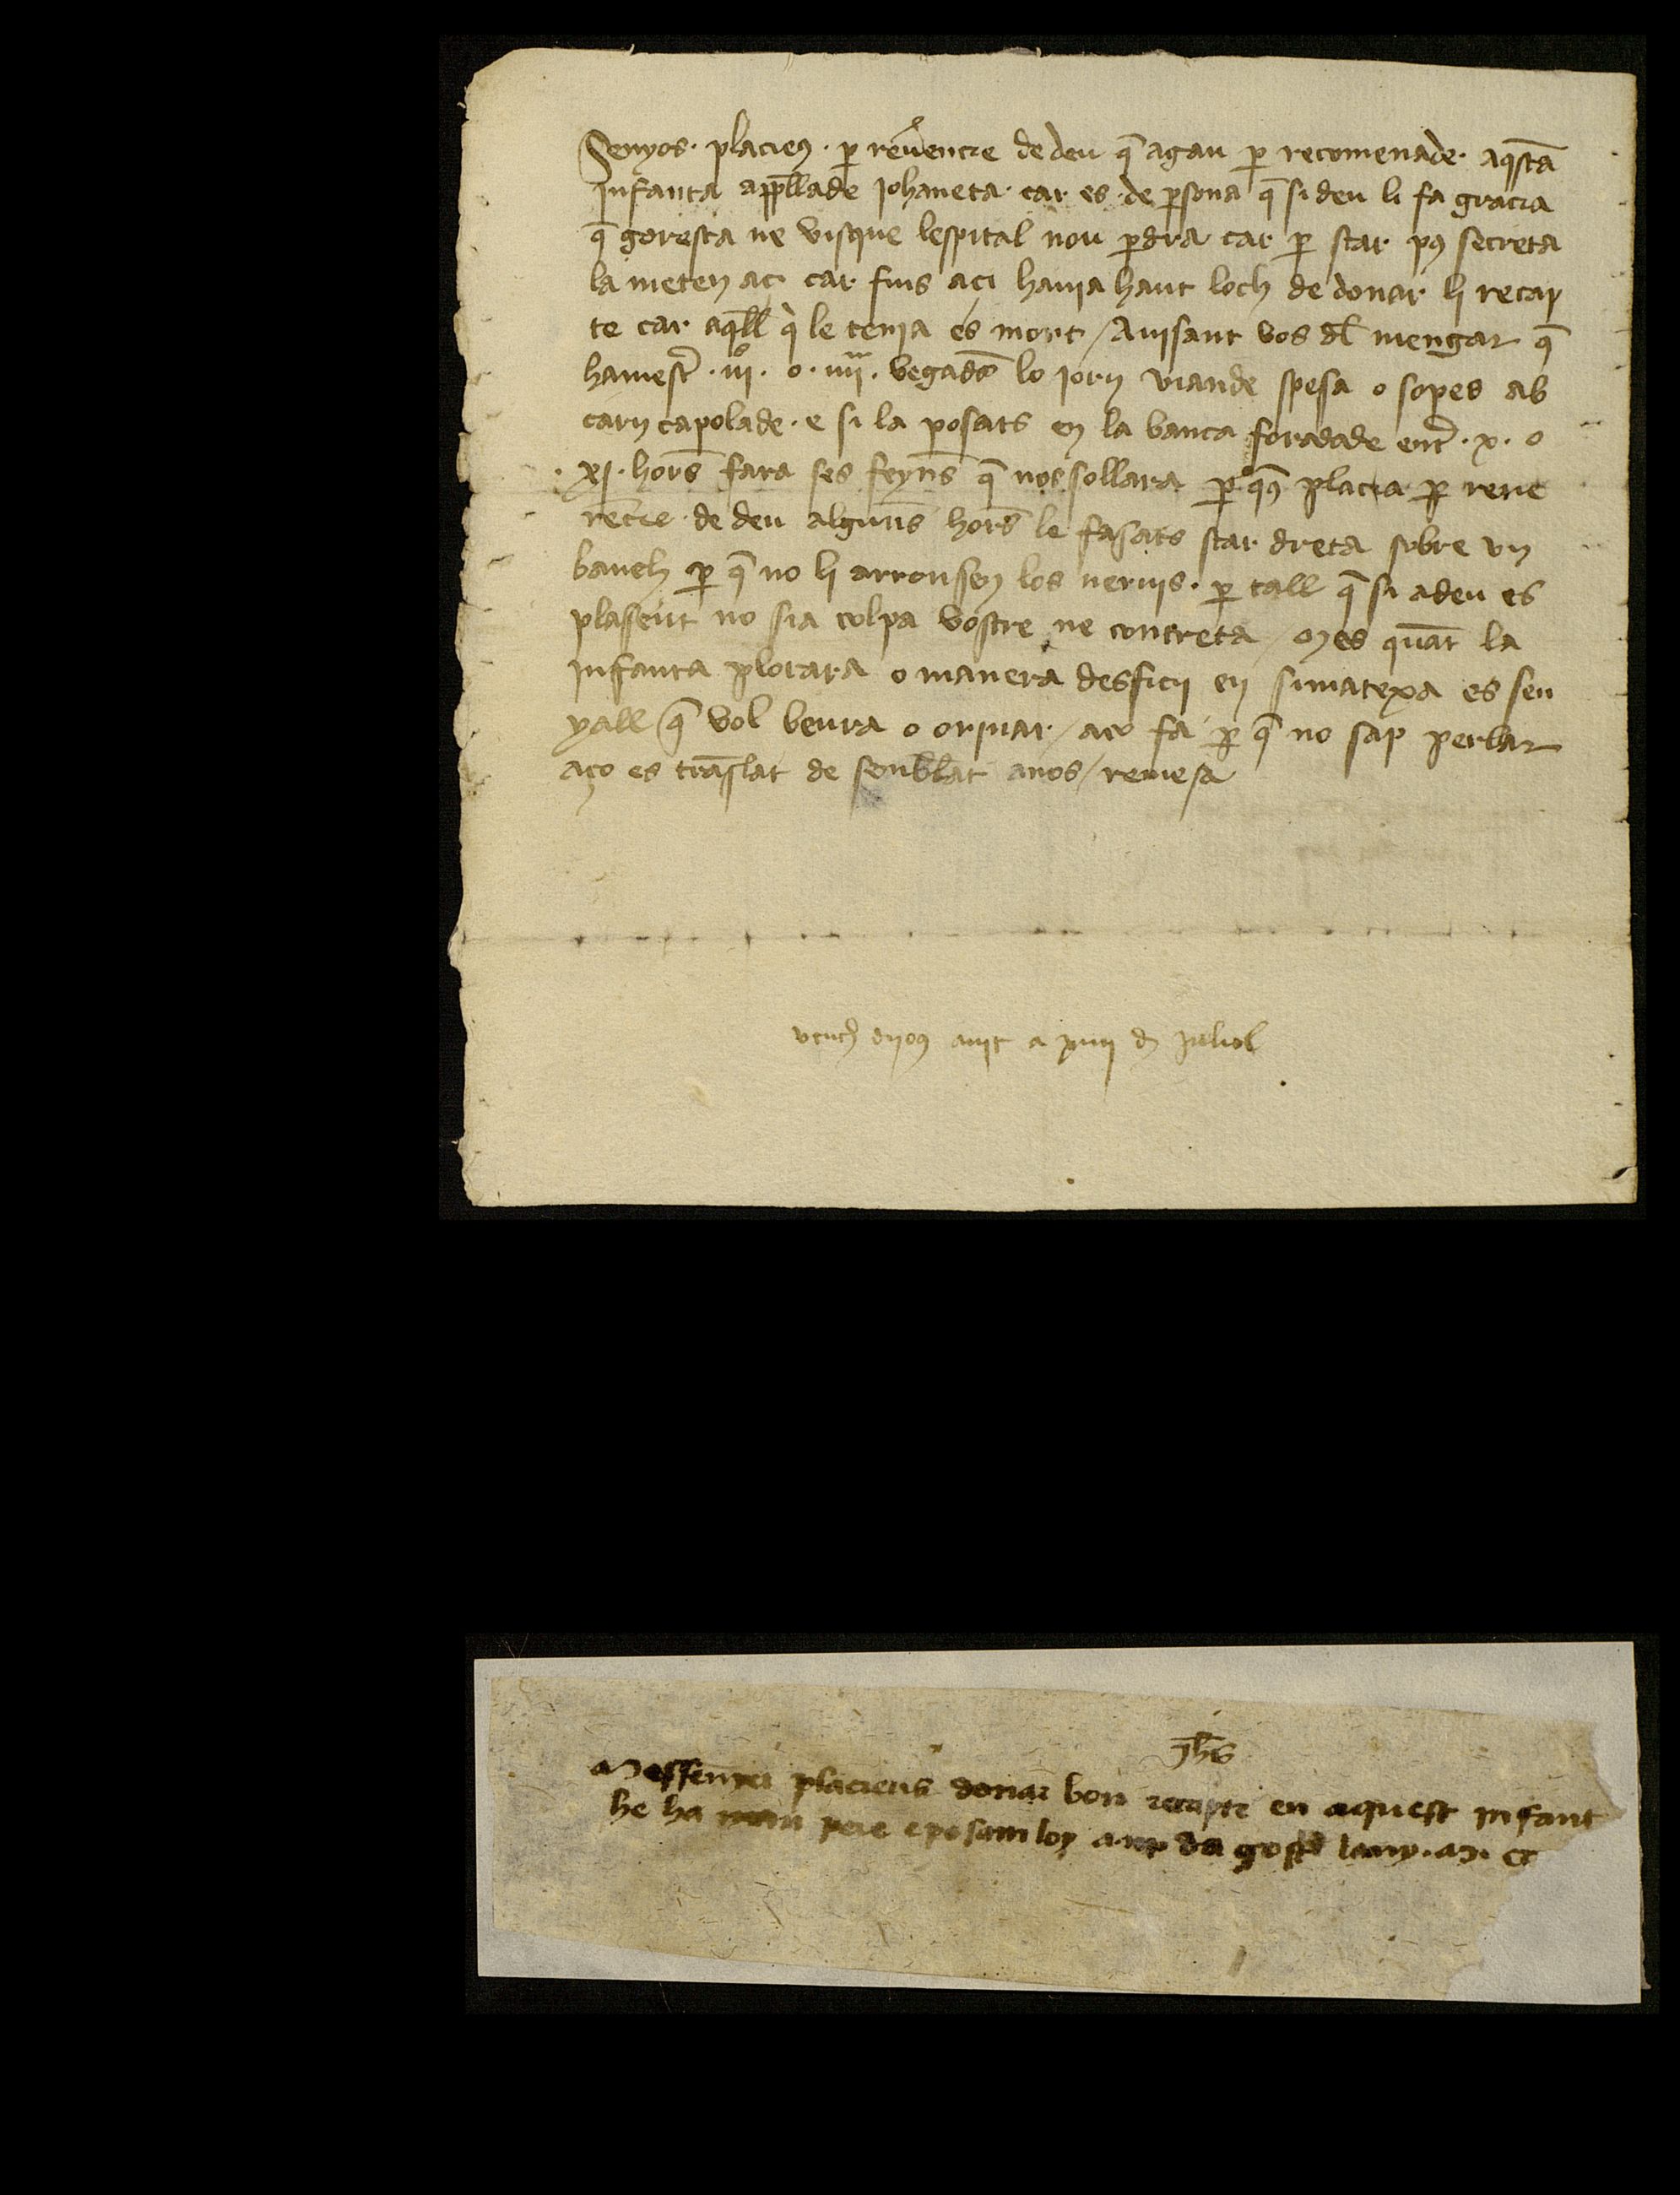 Senyos · placieꝯ · ꝑ reuͤencie de deu q̄ agau ꝑ recomenade · aq̄sta
Infanta appllade Johaneta · car es · de ꝑsona q̄ si deu li fa gracia
q̄ goresca ne visque lespital nou ꝑdra car ꝑ star pꝯ secreta
la meten aci car fins aci hauia haut loch de donar li recap
te car aq̄ll qͥ le tenia es mort / Auisant vos dl̄ mengar q̄
ha mest̄ · iii · o · iiii · vegades lo jorn viande spesa o sopes ab
carn capolade · e si la posats en la banca foradade ent̄ · x · o
· xi · hors̄ fara ses feyns̄ q̄ nos sollara ꝑ q̄ꝯ placia ꝑ reue
rēcie · de deu alguns̄ hors̄ le fasats star dreta sobre vn
banch ꝑ q̄ no li arronsen los neruis · ꝑ tall q̄ si a deu es
plasent no sia colpa vostre ne contreta / Mes quāt la
Infanta plorara o manera desfici en si matexa es sen
yall q̄ vol beura o orinar / aço fa ꝑ q̄ no sap perlar
aço es trāslat de semblat a nos / remesa
dijoꝯ a nit a xviii d Juliol
Jhs
Messenyer placieus donar bon recapte en aquest infant
he ha nom pere e posam loy a da gost lany · M · cc